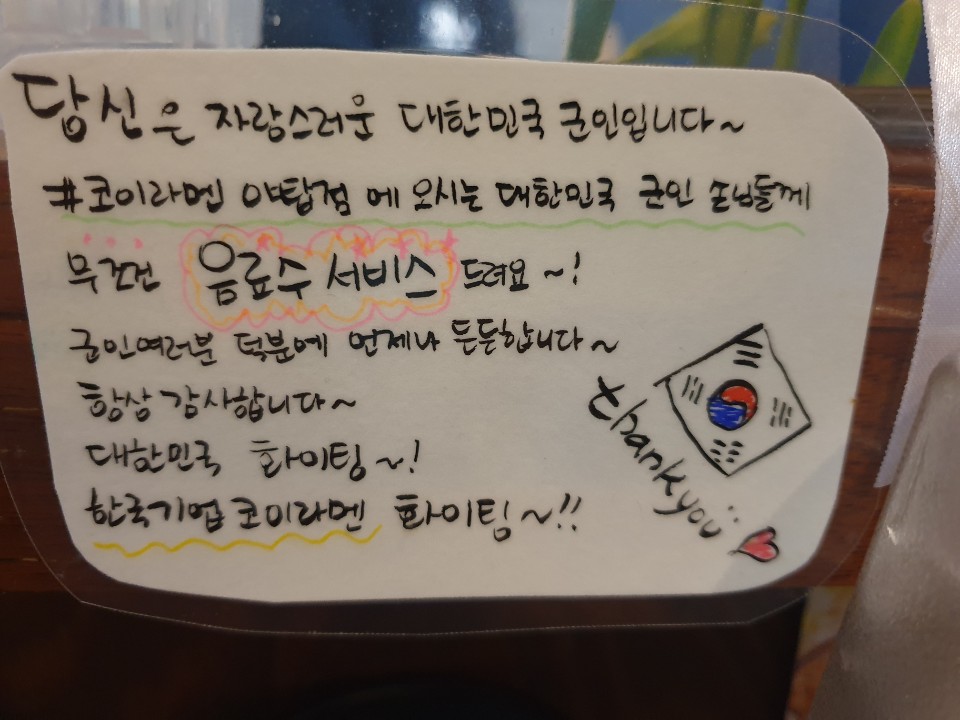 당신은 자랑스러운 대한민국 군인입니다~
#코이라멘 야탑점에 오시는 대한민국 군인 손님들께
무조건 음료수 서비스 드려요~!
군인여러분 덕분에 언제나 든든합니다~
항상 감사합니다~
대한민국 화이팅~!
한국기업 코이라멘 화이팅~!!
thank you